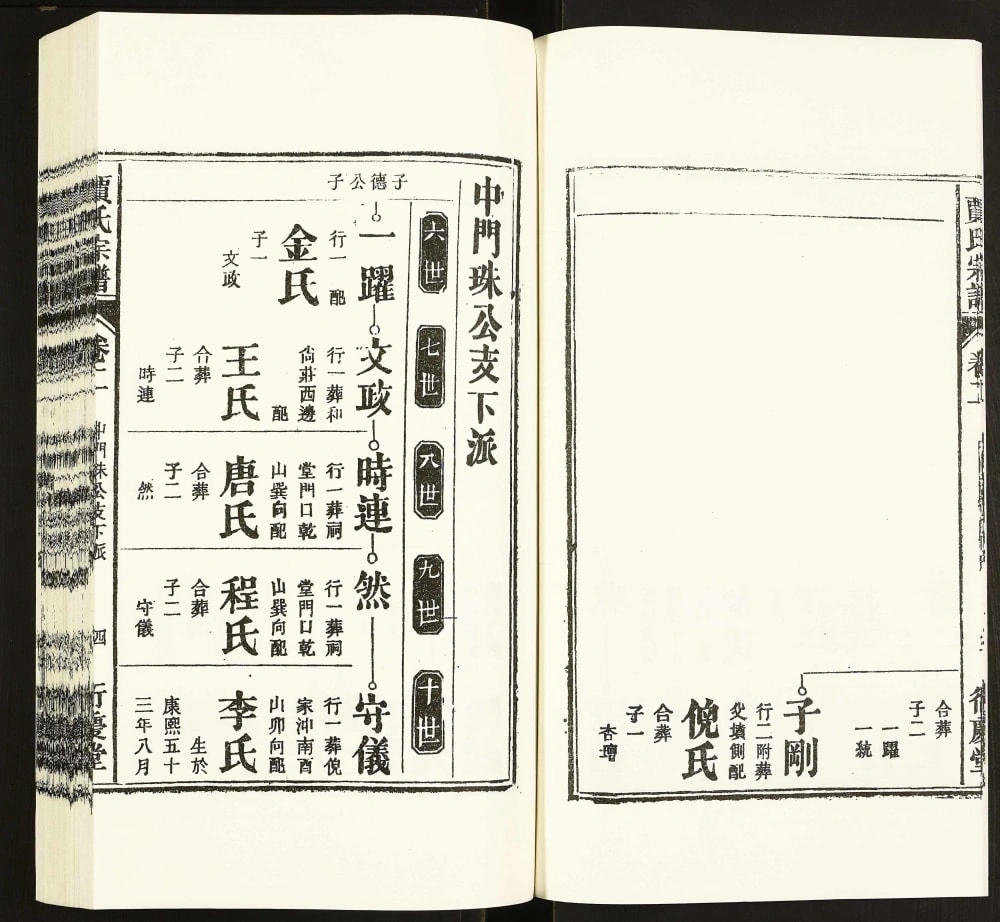 賈氏宗譜
卷二
衍慶堂
合葬
子二
一躍
一統
子剛
行二附葬
父墳側配
倪氏
合葬
子一
杏壇
中門珠公支下派
六世
七世
八世
九世
十世
子德公子
一躍
行一配
金氏
子一
文政
文政
行一葬和
尙莊西邊
配
王氏
合葬
子二
時連
時連
行一葬祠
堂門口乾
山巽向配
唐氏
合葬
子二
然
然
行一葬祠
堂門口乾
山巽向配
程氏
合葬
子二
守儀
守儀
行一葬倪
家沖南酉
山卯向配
李氏
生於
康熙五十
三年八月
賈氏宗譜
卷二
中門珠公支下派
四
衍慶堂